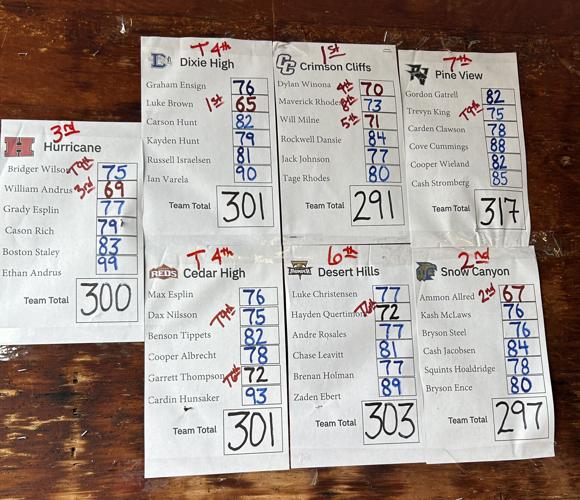 3rd
H
Hurricane
Bridger Wilson T9th 75
William Andrus 3rd 69
Grady Esplin 77
Cason Rich 79
Boston Staley 83
Ethan Andrus 99
Team Total 300
T 4th
D
Dixie High
Graham Ensign 76
Luke Brown 1st 65
Carson Hunt 82
Kayden Hunt 79
Russell Israelsen 81
Ian Varela 90
Team Total 301
1st
CC
Crimson Cliffs
Dylan Winona 4th 70
Maverick Rhodes 8th 73
Will Milne 5th 71
Rockwell Dansie 84
Jack Johnson 77
Tage Rhodes 80
Team Total 291
7th
PV
Pine View
Gordon Gatrell 82
Trevyn King T9th 75
Carden Clawson 78
Cove Cummings 88
Cooper Wieland 82
Cash Stromberg 85
Team Total 317
T 4th
REDS
Cedar High
Max Esplin 76
Dax Nilsson T9th 75
Benson Tippets 82
Cooper Albrecht 78
Garrett Thompson T6th 72
Cardin Hunsaker 93
Team Total 301
6th
Desert Hills
Luke Christensen 77
Hayden Quertimont T6th 72
Andre Rosales 77
Chase Leavitt 81
Brenan Holman 77
Zaden Ebert 89
Team Total 303
2nd
Snow Canyon
Ammon Allred 2nd 67
Kash McLaws 76
Bryson Steel 76
Cash Jacobsen 84
Squints Hoaldridge 78
Bryson Ence 80
Team Total 297